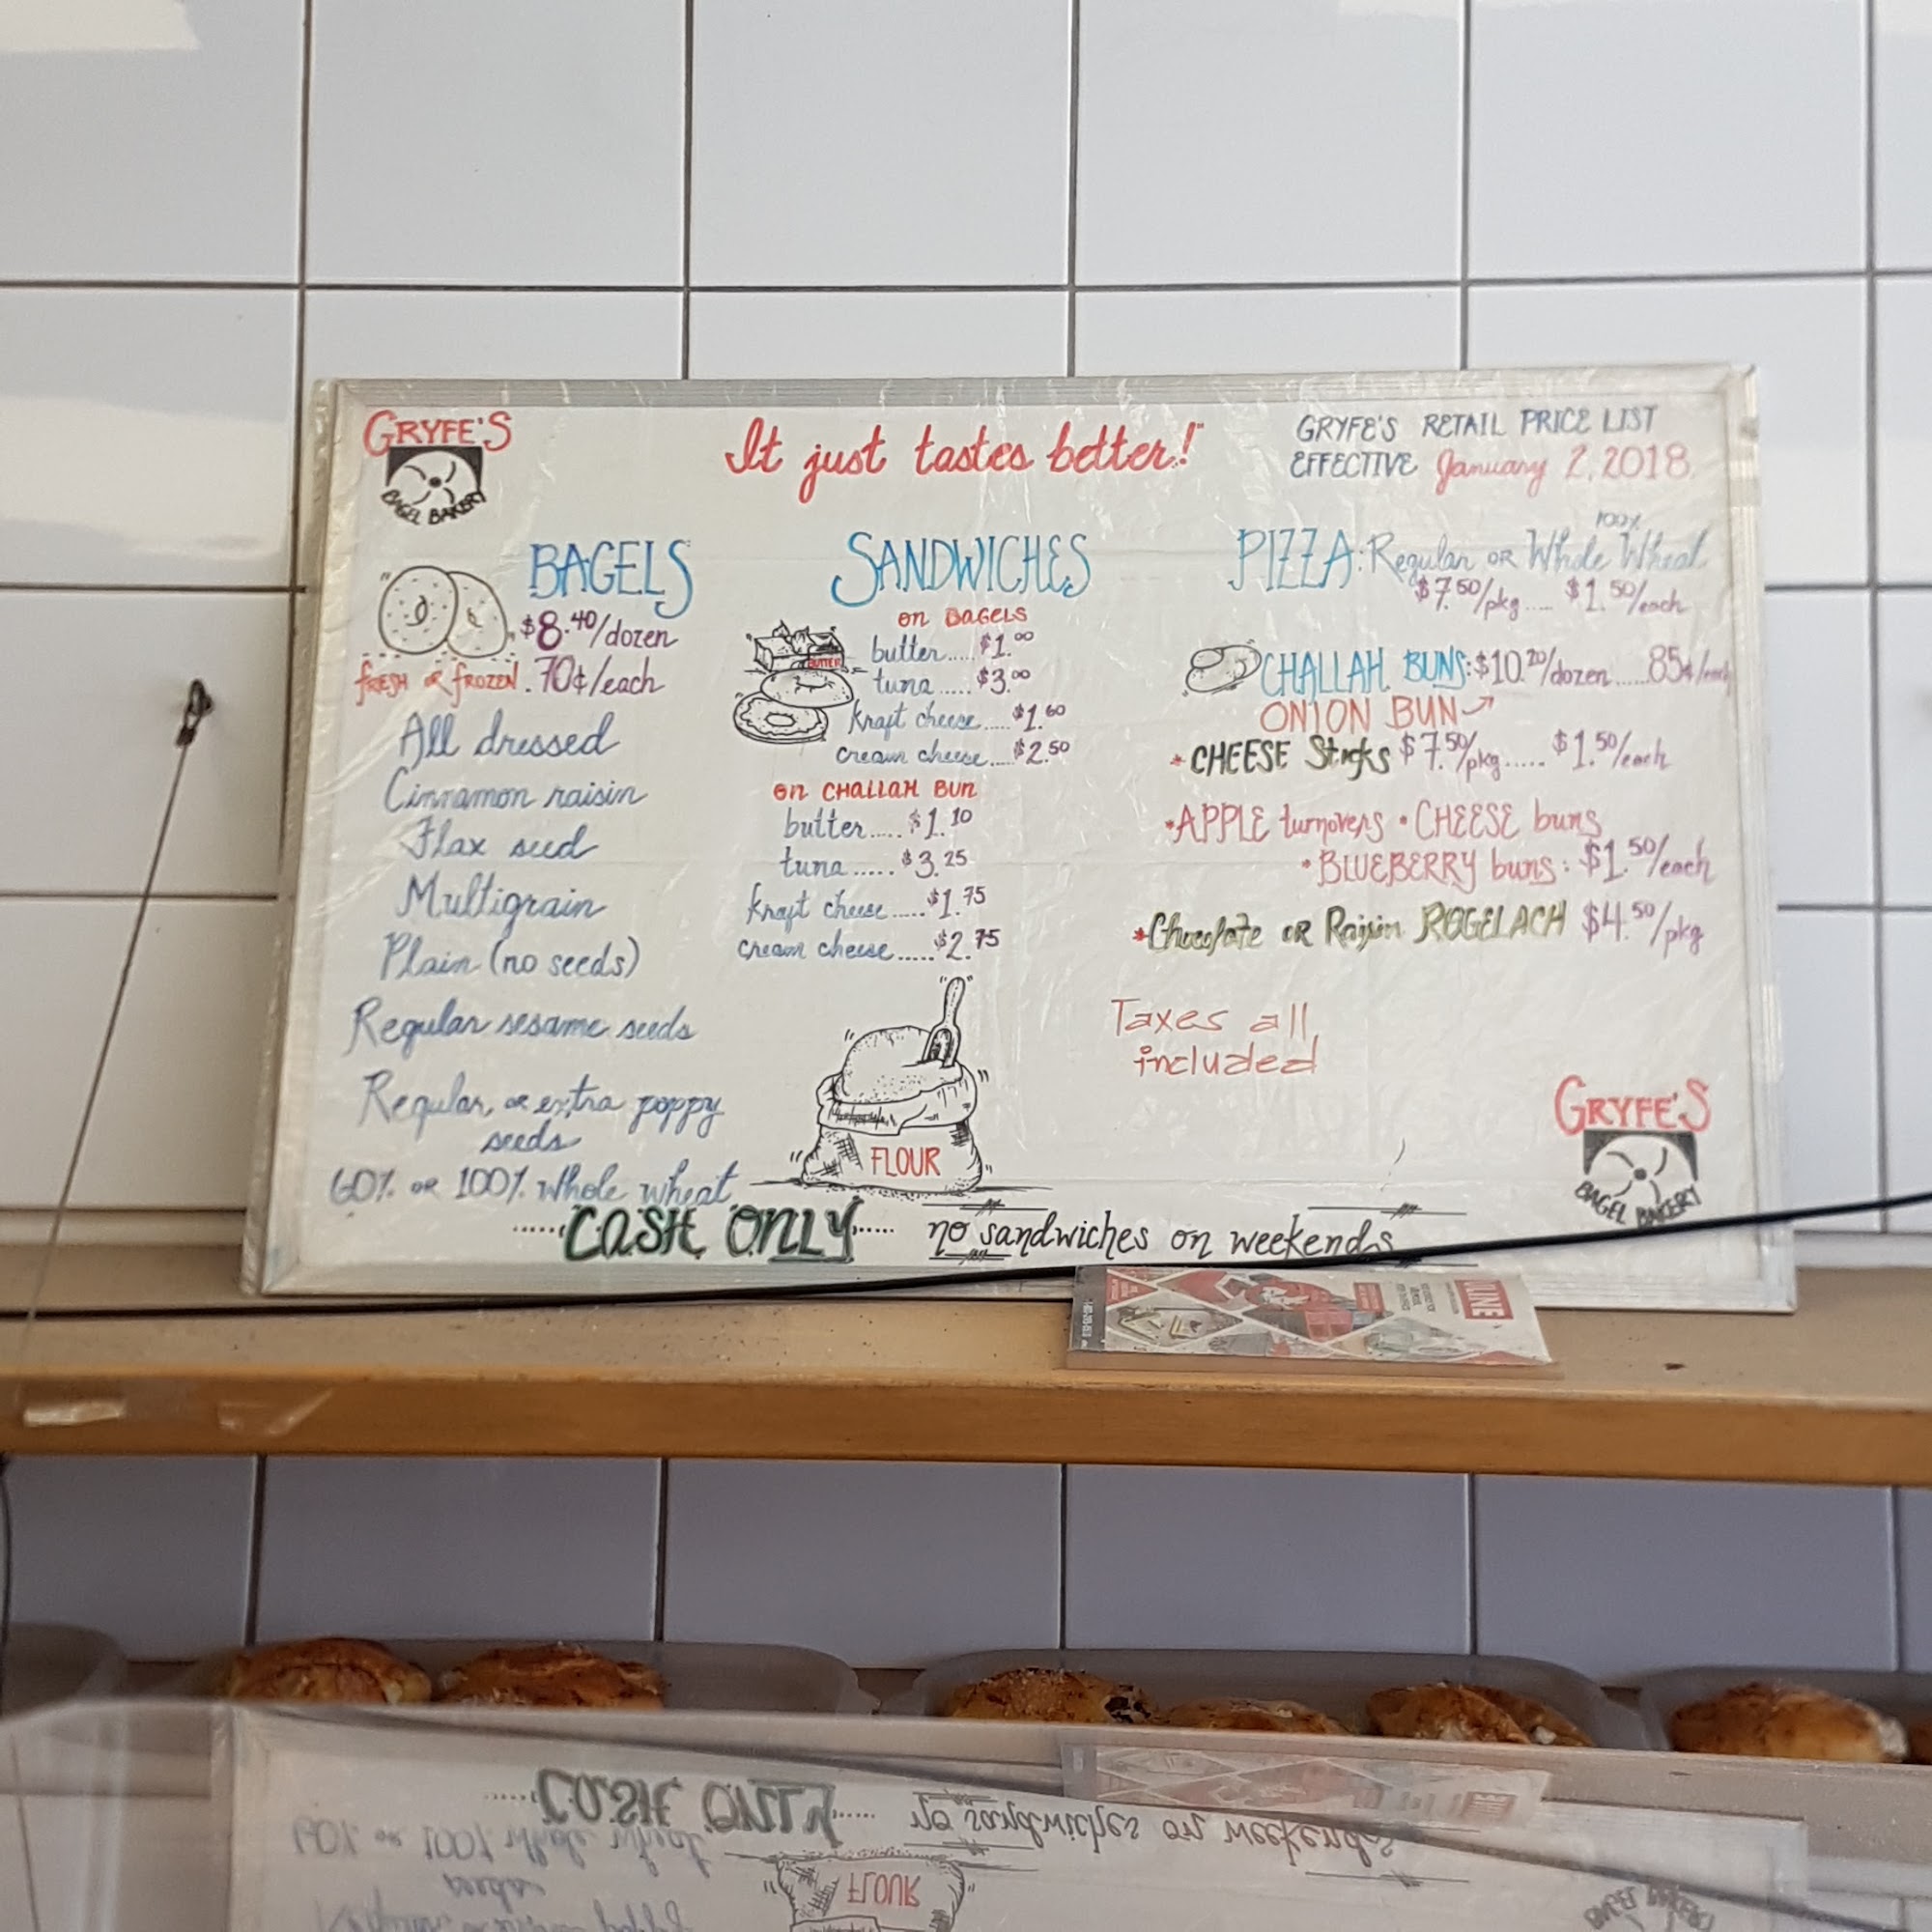 GRYFE'S
BAGEL BAKERY
It just tastes better!
GRYFE'S RETAIL PRICE LIST
EFFECTIVE January 2, 2018
BAGELS
$8.40/dozen
fRESH OR fROZEN. 70¢/each
All dressed
Cinnamon raisin
Flax seed
Multigrain
Plain (no seeds)
Regular sesame seeds
Regular, or extra poppy
seeds
60% OR 100% whole wheat
SANDWICHES
on BagELS
BUTTER
butter..... $1.00
tuna ..... $3.00
kraft cheese.... $1.60
cream cheese.... $2.50
on CHALLAH BUN
butter..... $1.10
tuna...... $3.25
kraft cheese..... $1.75
cream cheese..... $2.75
FLOUR
100%
PIZZA: Regular OR Whole Wheat
$7.50/pkg..... $1.50/each
CHALLAH BUNS: $10.20/dozen.....85¢/each
ONION BUN
* CHEESE Sticks $7.50/pkg..... $1.50/each
•APPLE turnovers • CHEESE buns
• BLUEBERRY buns: $1.50/each
*Chocolate OR Raisin ROGELACH $4.50/pkg
Taxes all
included
GRYFE'S
BAGEL BAKERY
......CASH ONLY..... no sandwiches on weekends